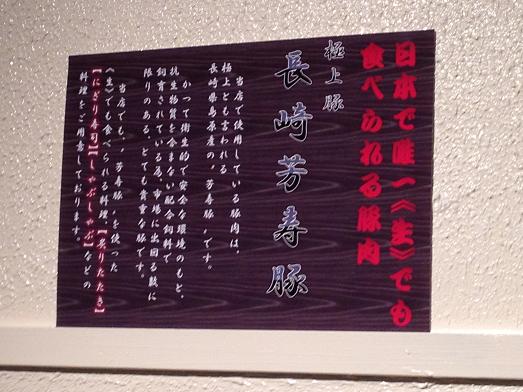 日本で唯一《生》でも
食べられる豚肉
極上豚
長崎芳寿豚
当店で使用している豚肉は、
極上とも言われる
長崎県島原産の〝芳寿豚〟です。
かつて衛生的で安全な環境のもと、
抗生物質を含まない配合飼料で
飼育されている為、市場に出回る数に
限りのある、とても貴重な豚です。
当店でも、〝芳寿豚〟を使った
《生》でも食べられる料理、【炙りたたき】
【にぎり寿司】【しゃぶしゃぶ】などの
料理をご用意しております。